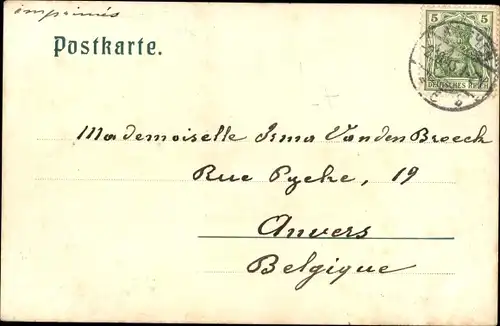 imprimés
Postkarte.
5 5
DEUTSCHES REICH
Mademoiselle Irma Vanden Broeck
Rue Pycke, 19
Anvers
Belgique